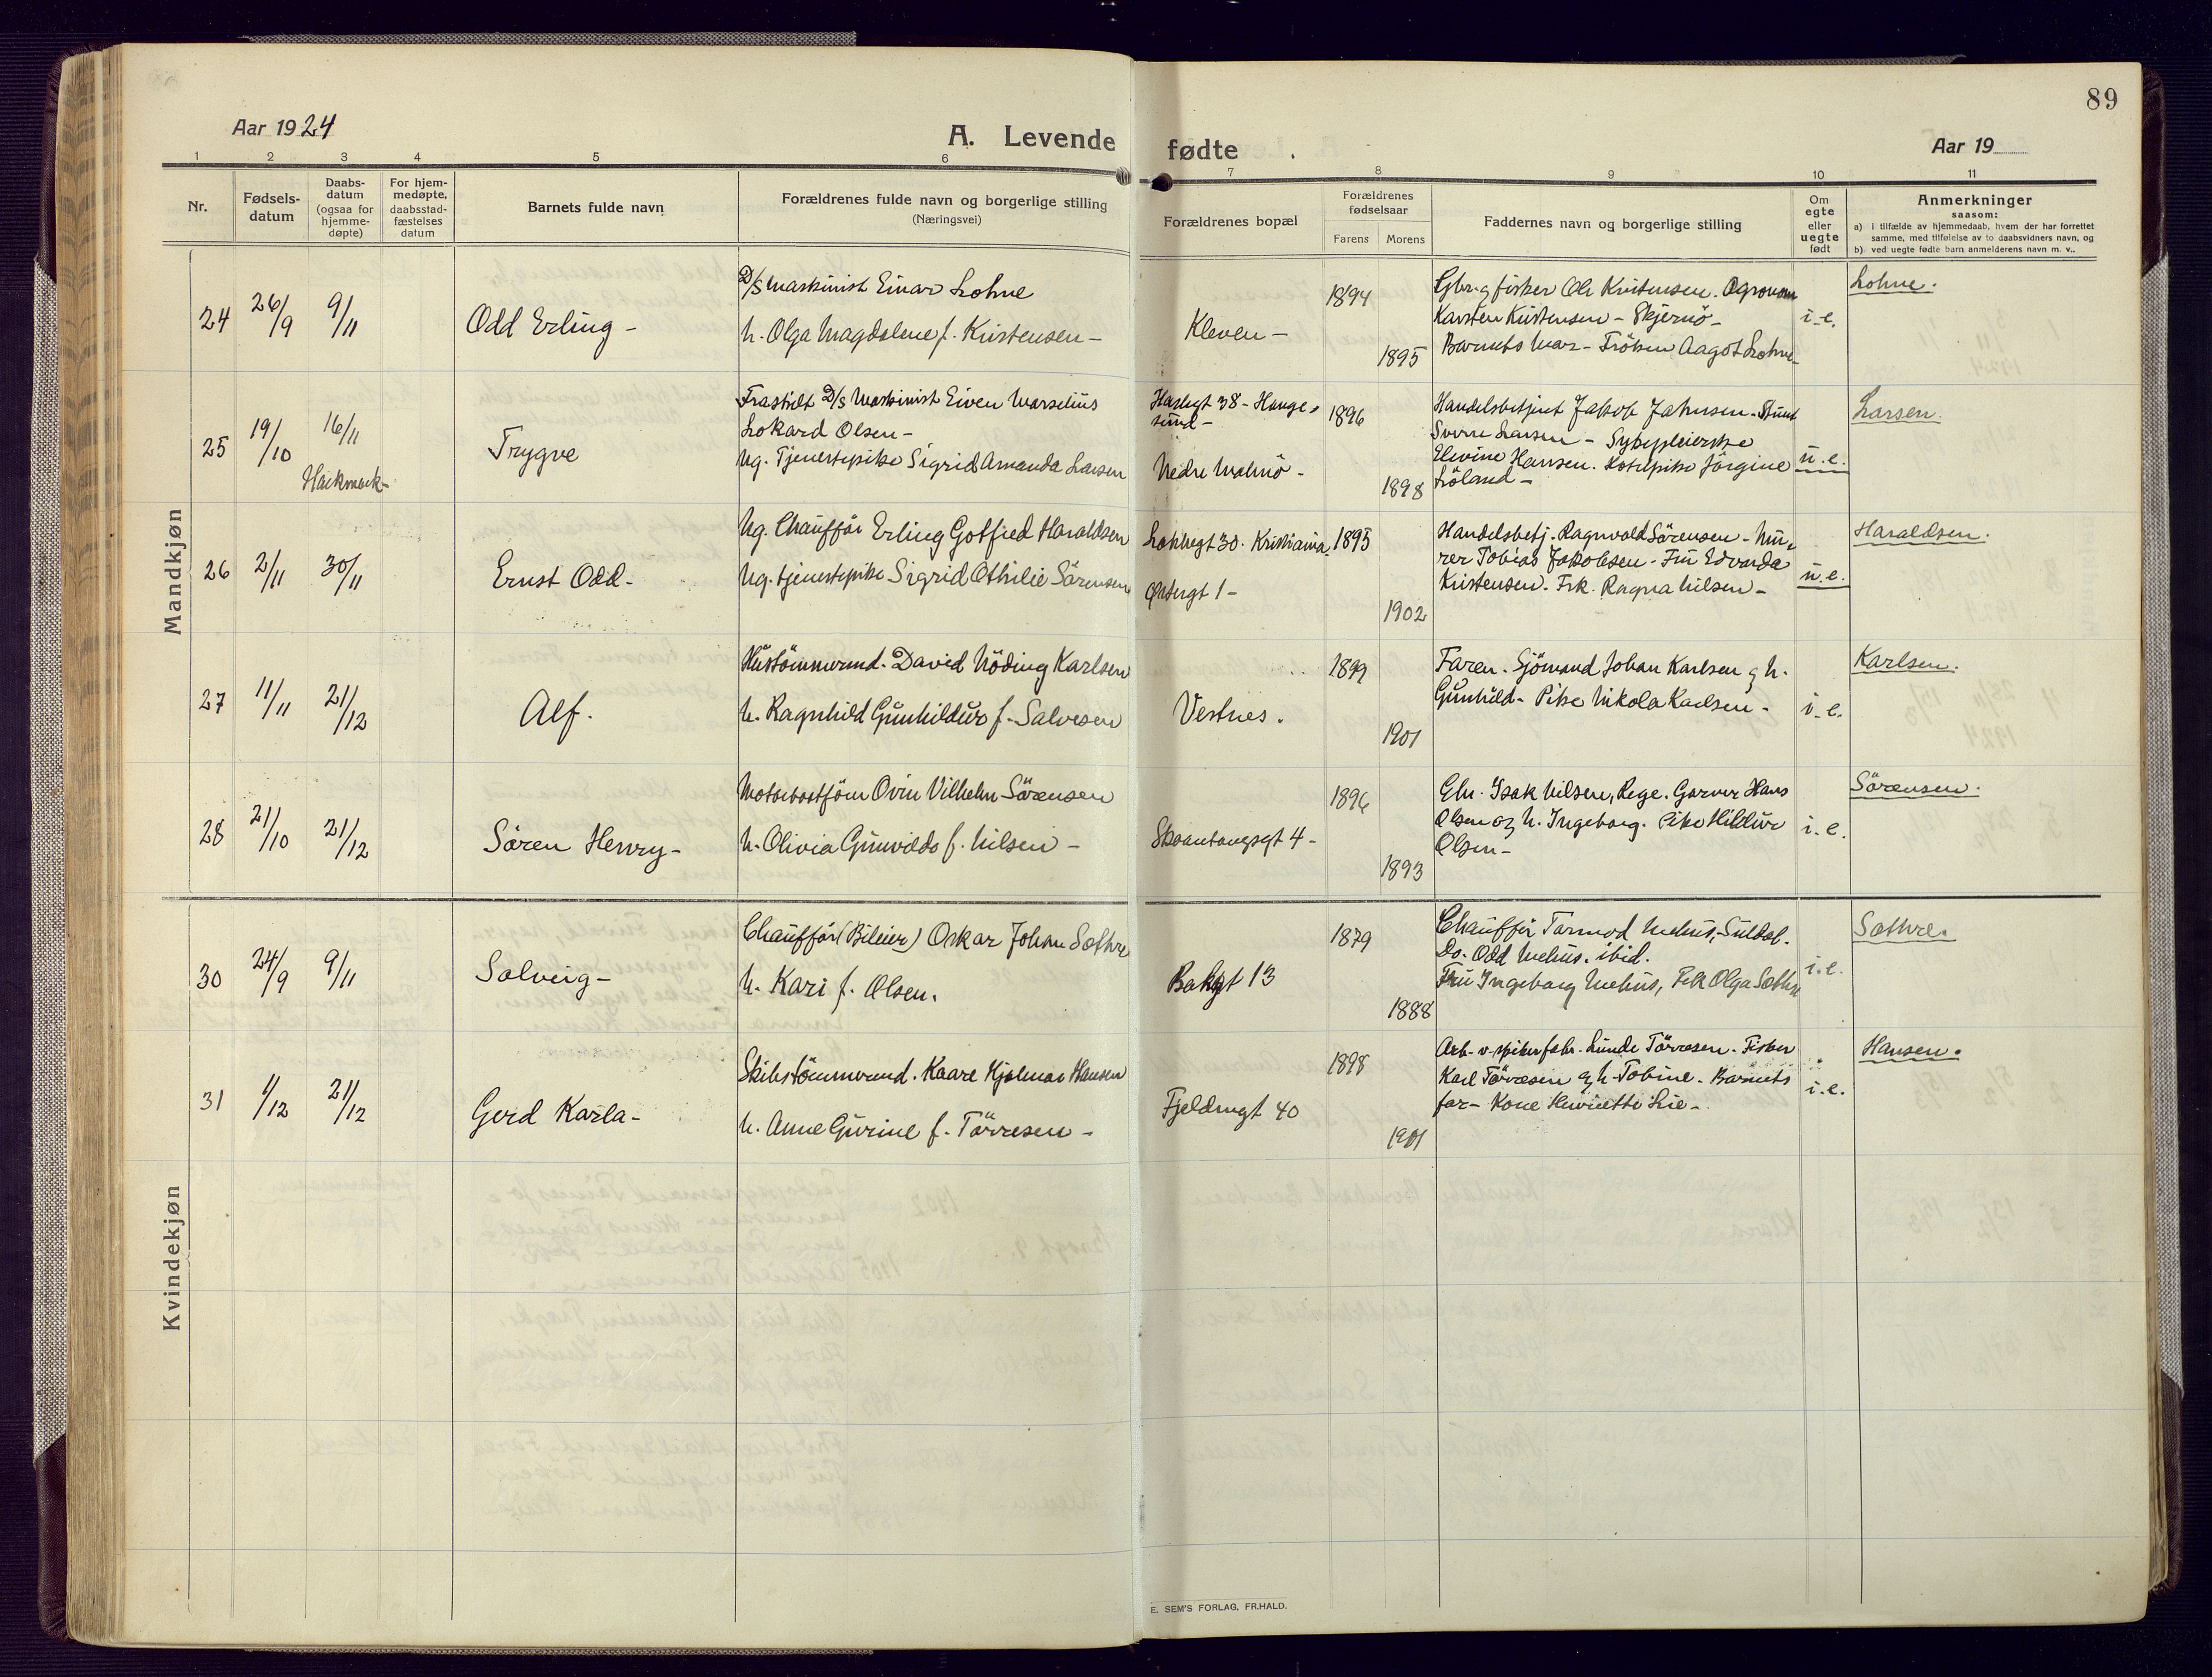 89
Aar 1924
A. Levende
fødte
Aar 19
1 2 3 4 5 6 7 8 9 10 11
Nr.
Fødsels-
datum
Daabs-
datum
(ogsaa for
hjemme-
døpte)
For hjem-
medøpte,
daabsstad-
fæstelses
datum
Barnets fulde navn
Forældrenes fulde navn og borgerlige stilling
(Næringsvei)
Forældrenes bopæl
Forældrenes
fødselsaar
Farens Morens
Faddernes navn og borgerlige stilling
Om
egte
eller
uegte
født
Anmerkninger
saasom:
a) i tilfælde av hjemmedaab, hvem der har forrettet
samme, med tilføielse av to daabsvidners navn, og
b) ved uegte fødte barn anmelderens navn m. v..
Mandkjøn
24 26/9 9/11 Odd Erling -
D/S Maskinist Einar Lohne
h. Olga Magdalene f. Kristensen -
Kleven -
1894
1895
Gbr. g fisker Ole Kristensen. Agronom
Karsten Kristensen - Skjernö -
Barnets Mor - Fröken Aagot Lohne
i. e.
Lohne.
25 19/10 16/11
Harkmark -
Trygve
Fraskilt D/S Maskinist Eiven Marselius
Lokard Olsen -
Ug. Tjenestepike Sigrid Amanda Larsen
38 - Hauge-
sund -
Nedre Malmö -
1896
1898
Handelsbetjent Jakob Jahnsen.
Sverre Larsen - Sykepleierske
Elevine Hansen. Jörgine
u. e.
Larsen.
26 2/11 30/11 Ernst Odd -
Ug. Chauffør Erling Gotfred Haraldsen
Ug. tjenestepike Sigrid Othilie Sörensen
30. Kristiania
Østergt 1 -
1895
1902
Handelsbetj. Ragnvald Sörensen - Mu-
rer Tobias Jakobsen - Fru Edvarda
Kristensen. Frk. Ragna Nilsen -
u. e.
Haraldsen.
27 11/11 21/12 Alf.
Hustömmermd. David Nöding Karlsen
h. Ragnhild Gunhildur f. Salvesen
Vestnes.
1899
1901
Faren. Sjömand Johan Karlsen g h.
Gunhild - Pike Nikola Karlsen -
i. e.
Karlsen.
28 21/10 21/12 Sören Henry -
Ovin Vilhelm Sörensen
h. Olivia Gunvilda f. Nilsen -
4 -
1896
1893
Isak Nilsen, Rege. Garver Hans
Olsen og h. Ingeborg. Pike Hildur
Olsen -
i. e.
Sörensen.
Kvindekjøn
30 24/9 9/11 Solveig -
Chauffør (Bileier) Oskar Johan Sæthre
h. Kari f. Olsen.
Bakgt 13
1879
1888
Chauffør Tormod Mehus, Suldal.
Do. Odd Mehus. ibid.
Fru Ingeborg Mehus, Frk Olga Sæthre
i. e.
Sæthre.
31 1/12 21/12 Gerd Karla -
Skibstömmermd. Kaare Hjalmar Hansen
h. Anne Gurine f. Törresen -
Fjeldmgt 40
1898
1901
Arb. v. spikerfabr. Lunde Törresen. Fisker
Karl Törresen g h. Tobine. Barnets
far - Kone Henriette Lie -
i. e.
Hansen.
E. SEM'S FORLAG, FR.HALD.